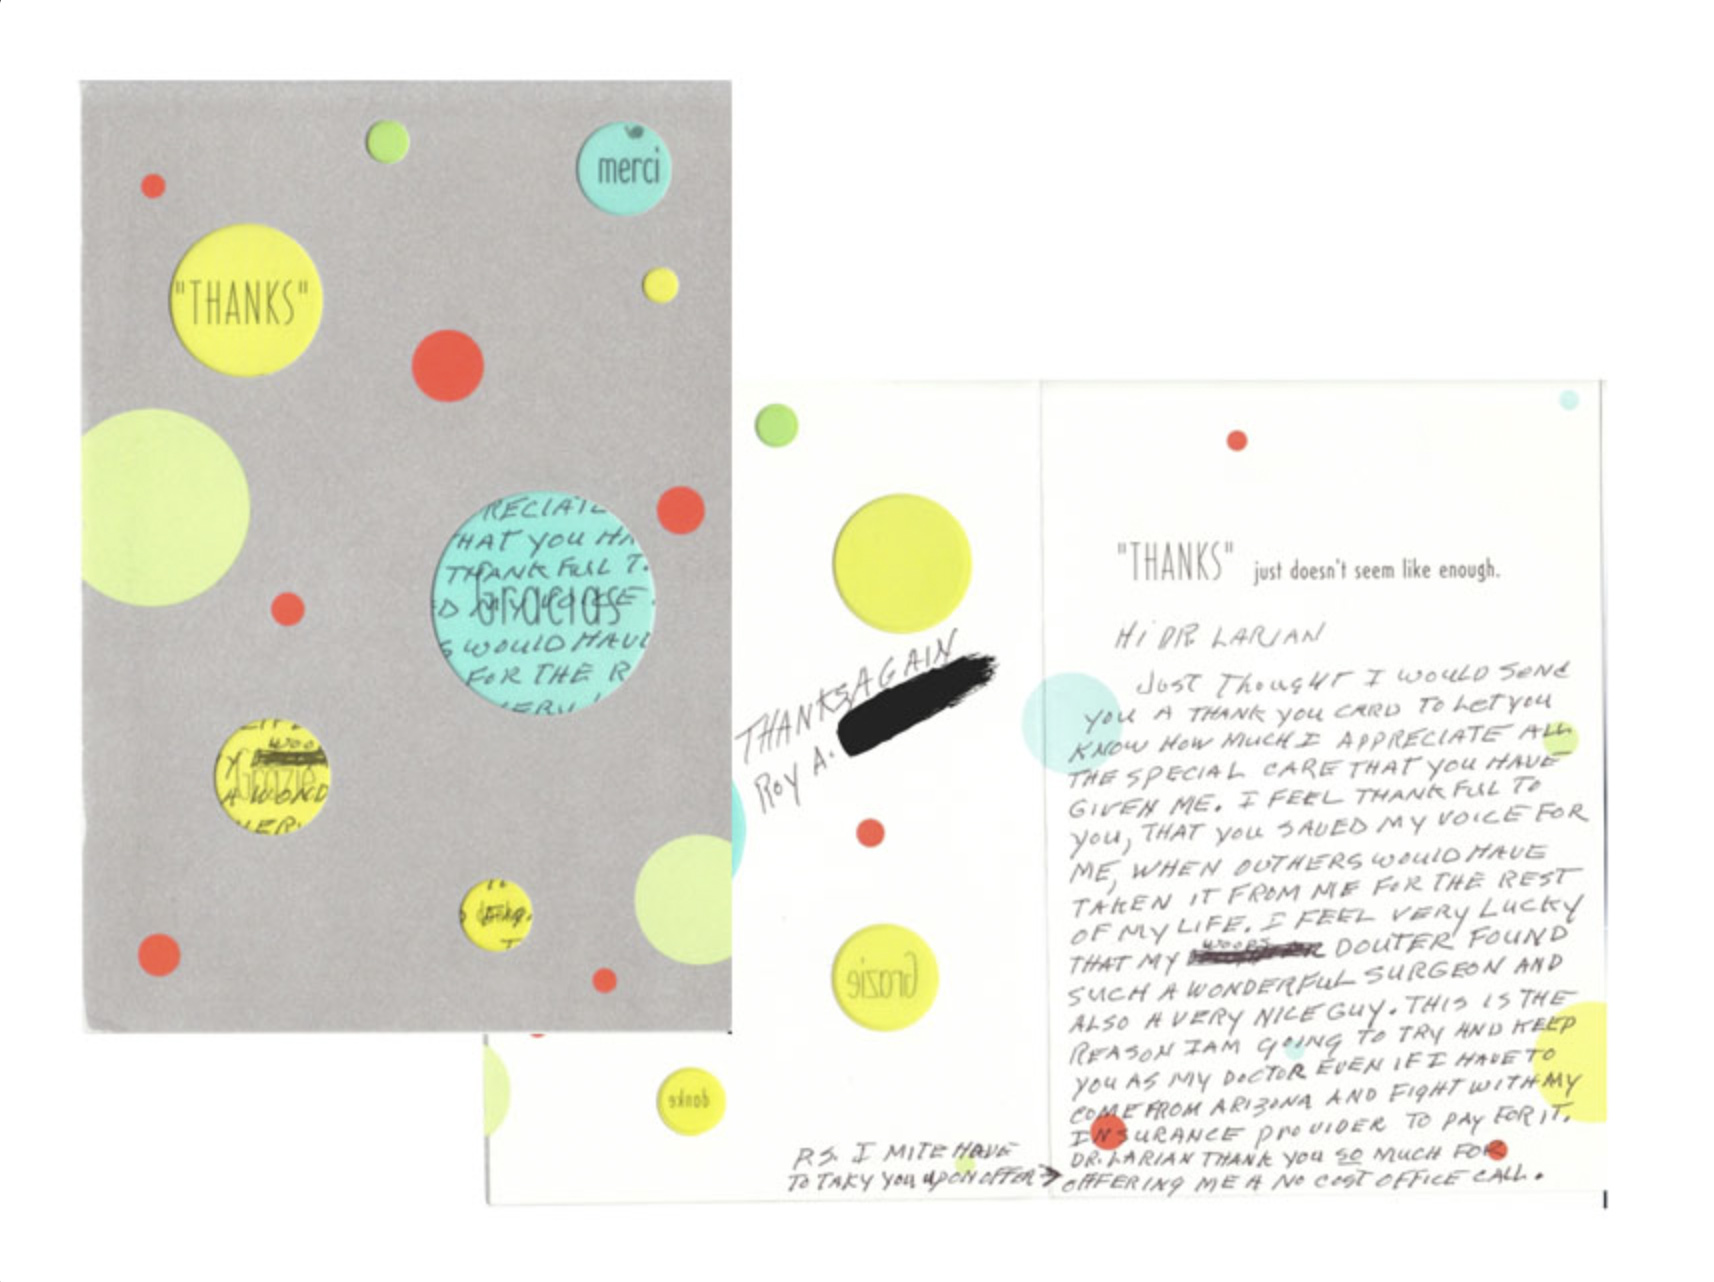 merci
"THANKS"
RECIATE
HAT YOU HA
THANKFULL T
Gracias
D MY VOICE
S WOULD HAVE
FOR THE R
VERY L
Y WOO
Grazie
A WOND
VER
danke
"THANKS" just doesn't seem like enough.
Hi DR. LARIAN
JUST THOUGHT I WOULD SEND
YOU A THANK YOU CARD TO LET YOU
KNOW HOW MUCH I APPRECIATE ALL
THE SPECIAL CARE THAT YOU HAVE
GIVEN ME. I FEEL THANKFULL TO
YOU, THAT YOU SAVED MY VOICE FOR
ME, WHEN OUTHERS WOULD HAVE
TAKEN IT FROM ME FOR THE REST
OF MY LIFE. I FEEL VERY LUCKY
THAT MY WOOPS DOUTER FOUND
SUCH A WONDERFUL SURGEON AND
ALSO A VERY NICE GUY. THIS IS THE
REASON I AM GOING TO TRY AND KEEP
YOU AS MY DOCTOR EVEN IF I HAVE TO
COME FROM ARIZONA AND FIGHT WITH MY
INSURANCE PROVIDER TO PAY FOR IT.
DR. LARIAN THANK YOU SO MUCH FOR
OFFERING ME A NO COST OFFICE CALL.
P.S. I MITE HAVE
TO TAKY YOU UPON OFFER →
THANKS AGAIN
ROY A.
Grazie
danke